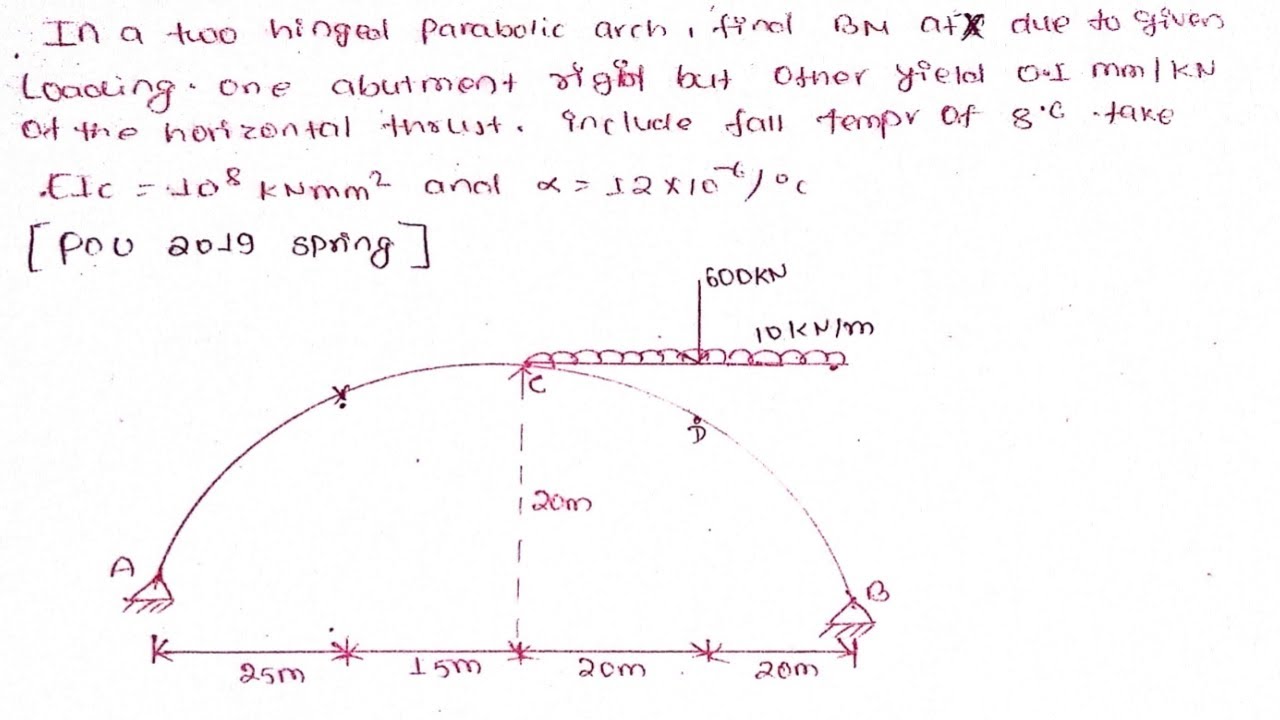 In a two hinged parabolic arch, find BM at X due to given
Loading. one abutment rigid but other yield 0.1 mm/KN
of the horizontal thrust. include fall tempr of 8°C. take
EIc = 10⁸ KNmm² and α = 12×10⁻⁶/°C
[POU 2019 spring]
600KN
10KN/m
C
D
20m
A
B
25m 15m 20m 20m